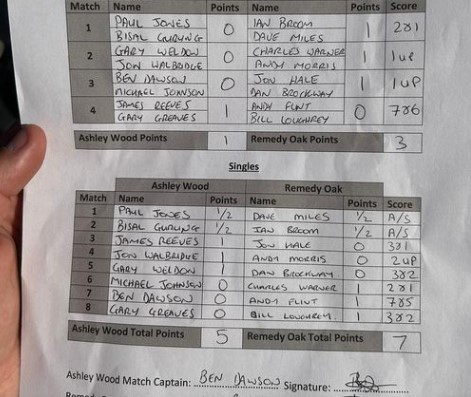 Match Name Points Name Points Score
1 PAUL JONES 0 IAN BROOM 1 2&1
BISAL GURUNG DAVE MILES
2 GARY WELDON 0 CHARLES WARNER 1 1up
JON WALBRIDGE ANDY MORRIS
3 BEN DAWSON 0 JON HALE 1 1UP
MICHAEL JOHNSON DAN BROCKWAY
4 JAMES REEVES 1 ANDY FLINT 0 7&6
GARY GREAVES BILL LOUGHREY
Ashley Wood Points 1 Remedy Oak Points 3
Singles
Ashley Wood Remedy Oak
Match Name Points Name Points Score
1 PAUL JONES 1/2 DAVE MILES 1/2 A/S
2 BISAL GURUNG 1/2 IAN BROOM 1/2 A/S
3 JAMES REEVES 1 JON HALE 0 3&1
4 JON WALBRIDGE 1 ANDY MORRIS 0 2UP
5 GARY WELDON 1 DAN BROCKWAY 0 3&2
6 MICHAEL JOHNSON 0 CHARLES WARNER 1 2&1
7 BEN DAWSON 0 ANDY FLINT 1 7&5
8 GARY GREAVES 0 BILL LOUGHREY 1 3&2
Ashley Wood Total Points 5 Remedy Oak Total Points 7
Ashley Wood Match Captain: BEN DAWSON Signature: